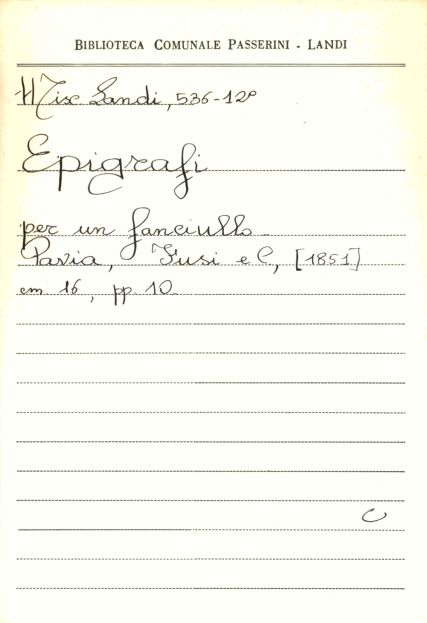 BIBLIOTECA COMUNALE PASSERINI - LANDI
Misc. Landi, 536-12º
Epigrafi
per un fanciullo.
Pavia, Fusi e C, [1851]
cm. 16, pp. 10.
C